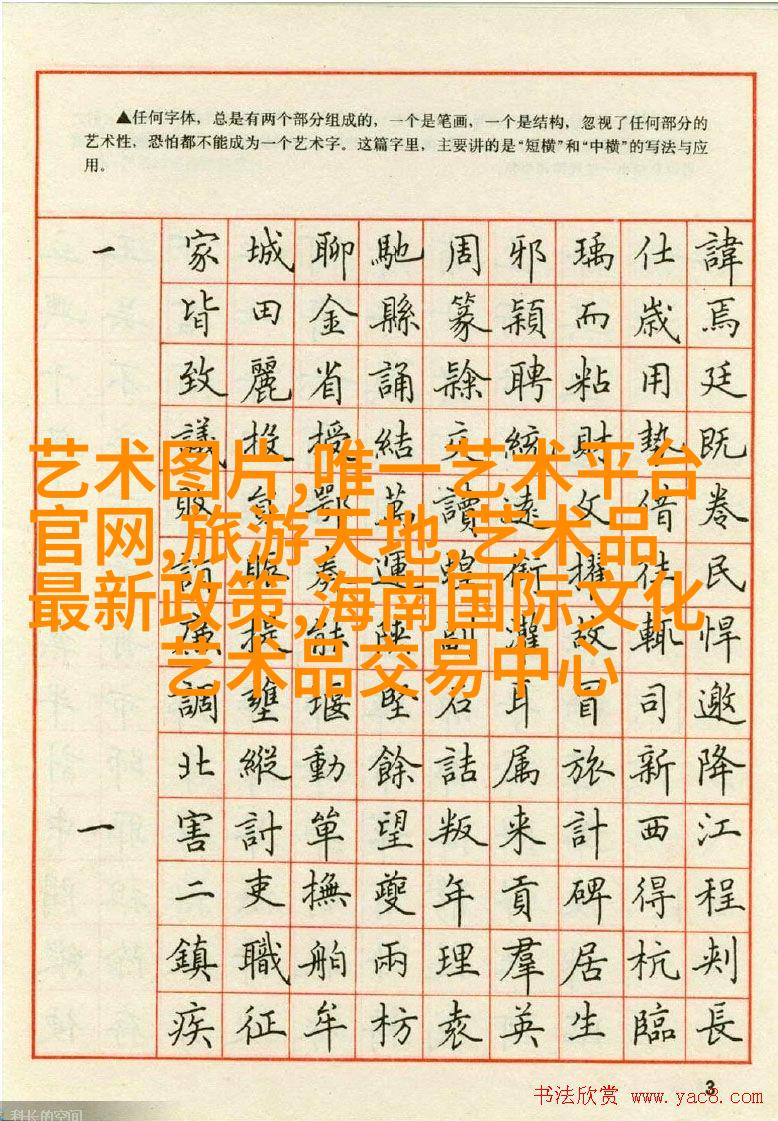 ▲任何字体，总是有两个部分组成的，一个是笔画，一个是结构，忽视了任何部分的
艺术性，恐怕都不能成为一个艺术字。这篇字里，主要讲的是“短横”和“中横”的写法与应
用。
一 家 城 聊 馳 周 邪 瑀 仕 諱
皆 田 金 縣 篆 潁 而 歲 焉
致 麗 省 誦 聘 粘 用 廷
議 投 授 結 交 統 財 勢 既
艺术图片,唯一艺术平台
萬 讀 遠 文 借 卷
官网,旅游天地,艺术品
運 蝗 衛 擢 民
最新政策,海南国际文化
能 副 灌 故 輒 悍
艺术品交易中心
調 壅 堰 堅 石 耳 冒 司 邀
北 縱 動 餘 詰 属 旅 新 降
一 害 討 單 望 叛 来 計 西 江
二 吏 撫 夔 年 貢 碑 得 程
鎮 職 舶 兩 理 羣 居 杭 刺
疾 征 牟 枋 袁 英 生 臨 長
3
书法欣赏 www.yac8.com
科长的空间